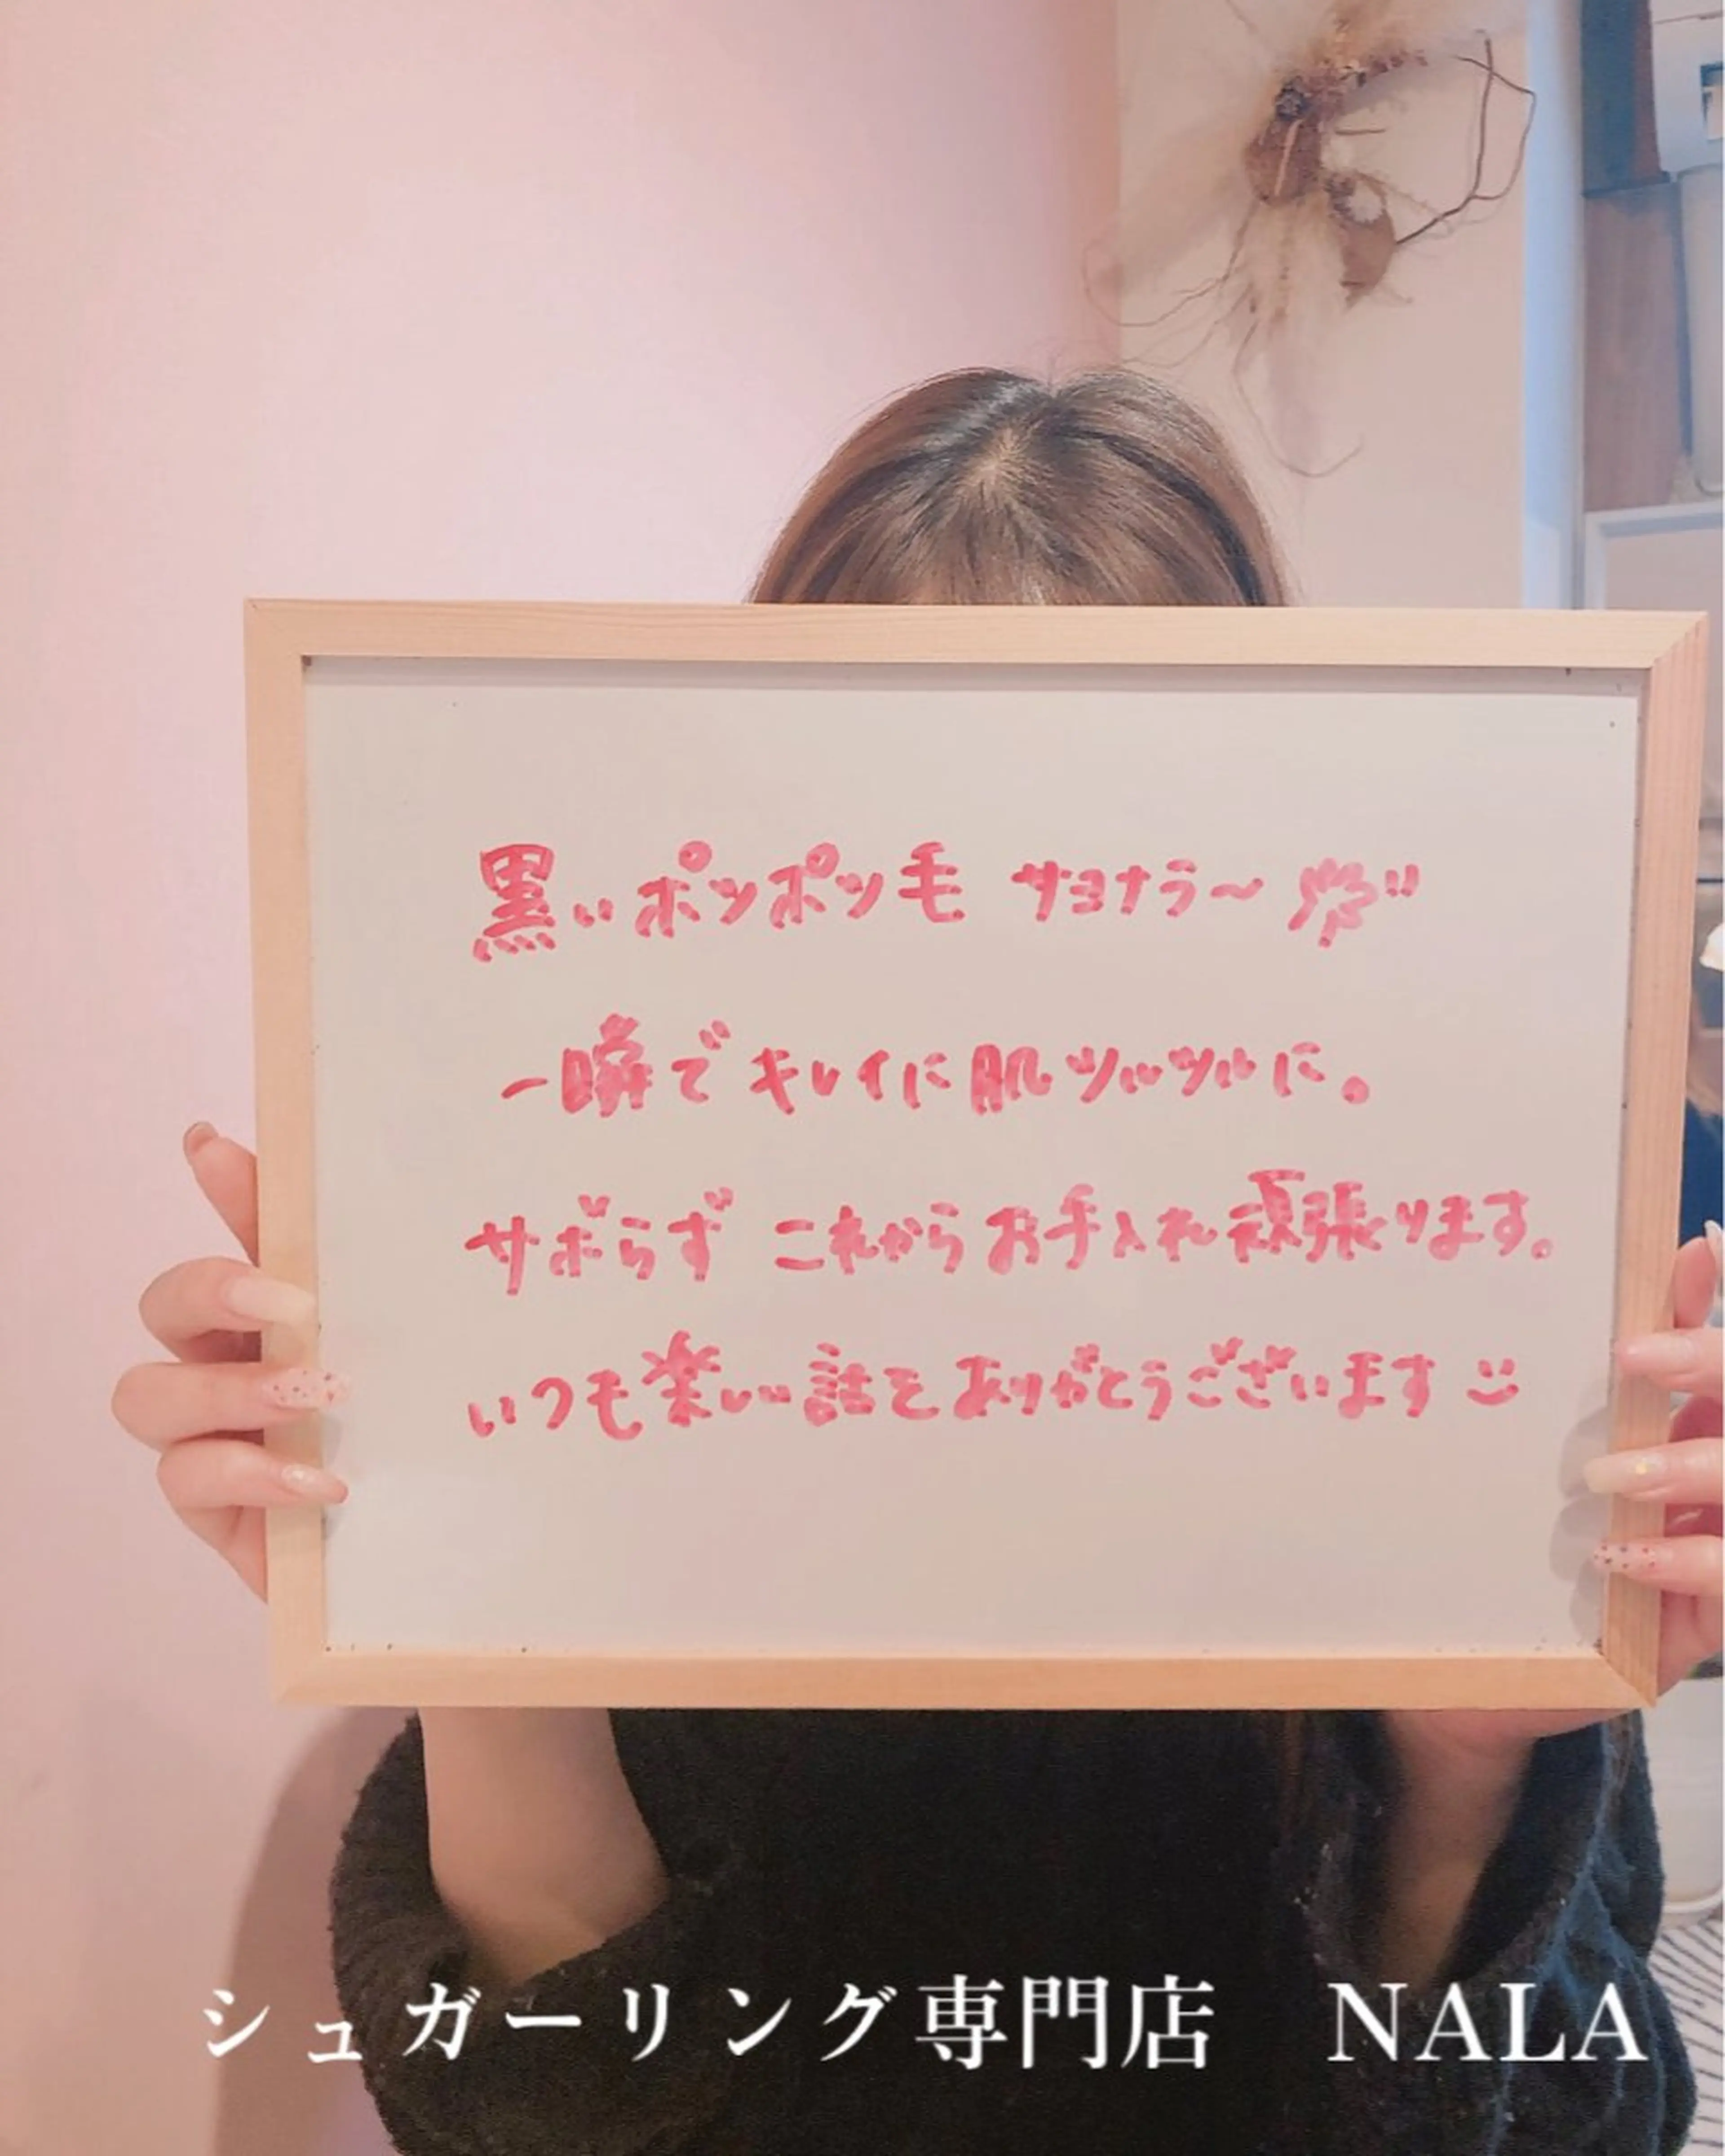 黒いポツポツ毛 サヨナラ〜
一瞬でキレイに肌ツルツルに。
サボらず これからお手入れ頑張ります。
いつも楽しい話をありがとうございます
シュガーリング専門店 NALA